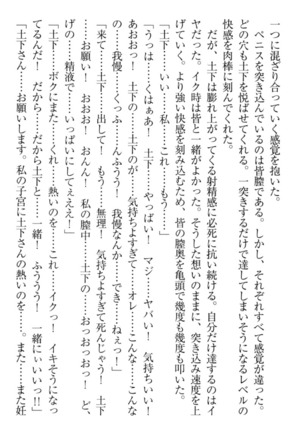 一つに混ざり合っていく感覚を抱いた。
ペニスを突き込んでいるのは皆膣である。しかし、それぞれすべて感覚が違った。
どの穴も土下を悦ばせてくれる。一突きするだけで達してしまいそうになるレベルの
快感を肉棒に刻んでくれた。
だが、土下は膨れ上がってくる射精感に必死に抗い続ける。自分だけ達するのはイ
ヤだった。イク時は皆と一緒がよかった。そんな想いのままに、突き込み速度を上
げていく。より強い快感を刻み込むため、皆の膣奥を亀頭で幾度も幾度も叩いた。
「うっは……くはぁあ 土下……やっばい！ マジ……ヤバい！ 気持ちいい！
あおおっ！ 土下の……土下のが、気持ちよすぎて……オレ……こんな……こんな
の……我慢……くっふ……んふううっ！ 我慢なんか……でき……ねぇっ！」
「来て……土下……出して！ もう……無理！ 気持ちよすぎて死んじゃう！ 土下
……お願い！ おおお！ おんん！ 私の膣中……土下の……おっおっおっ！ ど、
げの……精液で……いっぱいにしてぇええ！」
「土下……ボクにまた……くれ……熱いのを……これ……イクっ！ イキそうになっ
てるんだ！ だから……だから土下と……一緒！ ふううう！ 一緒にぃいいっ!!」
「土下さん……お願いします。私の子宮に土下さんの熱いのを……。また……また妊